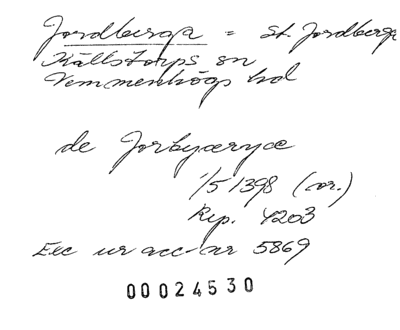 Jordberga = St. Jordberga
Källstorps sn
Vemmenhögs hd
de Jorbyærghe
1/5 1398 (or.)
Rep. 4203
Exc ur acc-nr 5869
00024530